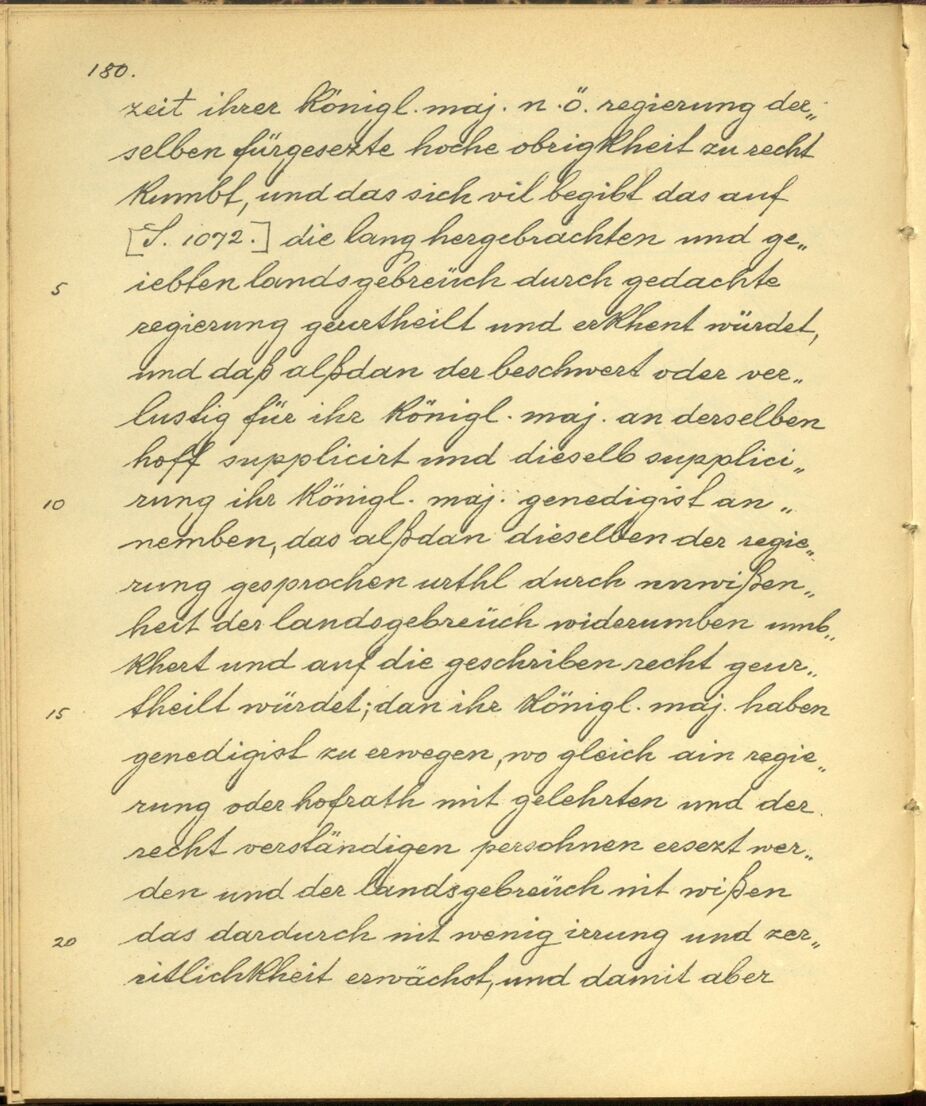 180.
zeit ihrer Königl. maj. n. ö. regierung der„
selben fürgesezte hoche obrigkheit zu recht
kumbt, und das sich vil begibt das auf
[S. 1072.] die lang hergebrachten und ge„
5 iebten landsgebreüch durch gedachte
regierung geurtheilt und erkhent würdet,
und daß alßdan der beschwert oder ver„
lustig für ihr Königl. maj. an derselben
hoff supplicirt und dieselb supplici„
10 rung ihr Königl. maj. genedigist an„
nemben, das alßdan dieselben der regie„
rung gesprochen urthl durch unwißen„
heit der landsgebreüch widerumben umb„
khert und auf die geschriben recht geur„
15 theilt würdet; dan ihr Königl. maj. haben
genedigist zu erwegen, wo gleich ain regie„
rung oder hofrath mit gelehrten und der
recht verständigen persohnen ersezt wer„
den und der landsgebreüch nit wißen
20 das dardurch nit wenig irrung und zer„
ritlichkheit erwächst, und damit aber